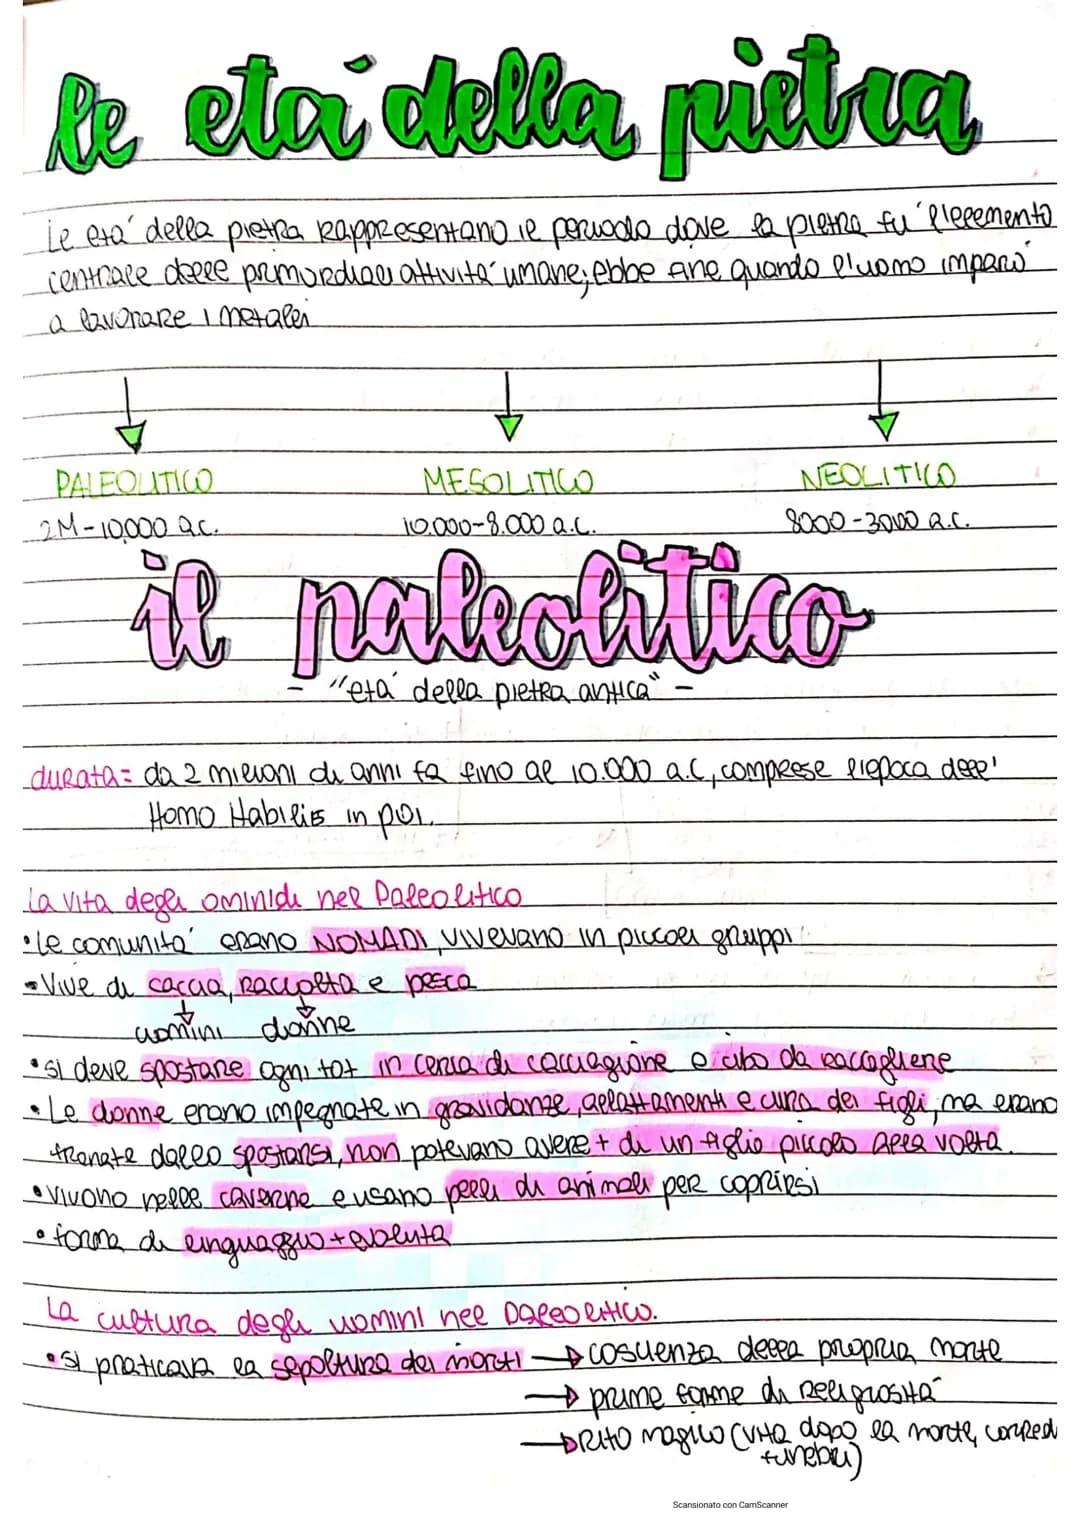 le età della pietra
Le età della pietra rappresentano il periodo dove la pietra fu l'elemento
centrale delle primordiali attività umane; ebbe fine quando l'uomo imparò
a lavorare i metalli
PALEOLITICO MESOLITICO NEOLITICO
2M-10.000 a.C. 10.000-8.000 a.C. 8000-3000 a.C.
il paleolitico
- "età della pietra antica" -
durata= da 2 milioni di anni fa fino al 10.000 a.C, comprese l'epoca dell'
Homo Habilis in poi.
La vita degli ominidi nel Paleolitico
•Le comunità erano NOMADI, vivevano in piccoli gruppi
•Vive di caccia, raccolta e pesca
uomini donne
•si deve spostare ogni tot in cerca di cacciagione o cibo da raccogliere
•Le donne erano impegnate in gravidanze, allattamenti e cura dei figli, ma erano
frenate dallo spostarsi, non potevano avere + di un figlio piccolo alla volta.
•Vivono nelle caverne e usano pelli di animali per coprirsi
•forma di linguaggio + evoluta
La cultura degli uomini nel paleolitico.
•si praticava la sepoltura dei morti → coscienza della propria morte
→ prime forme di religiosità
→ Rito magico (vita dopo la morte, corredi
funebri)
Scansionato con CamScanner